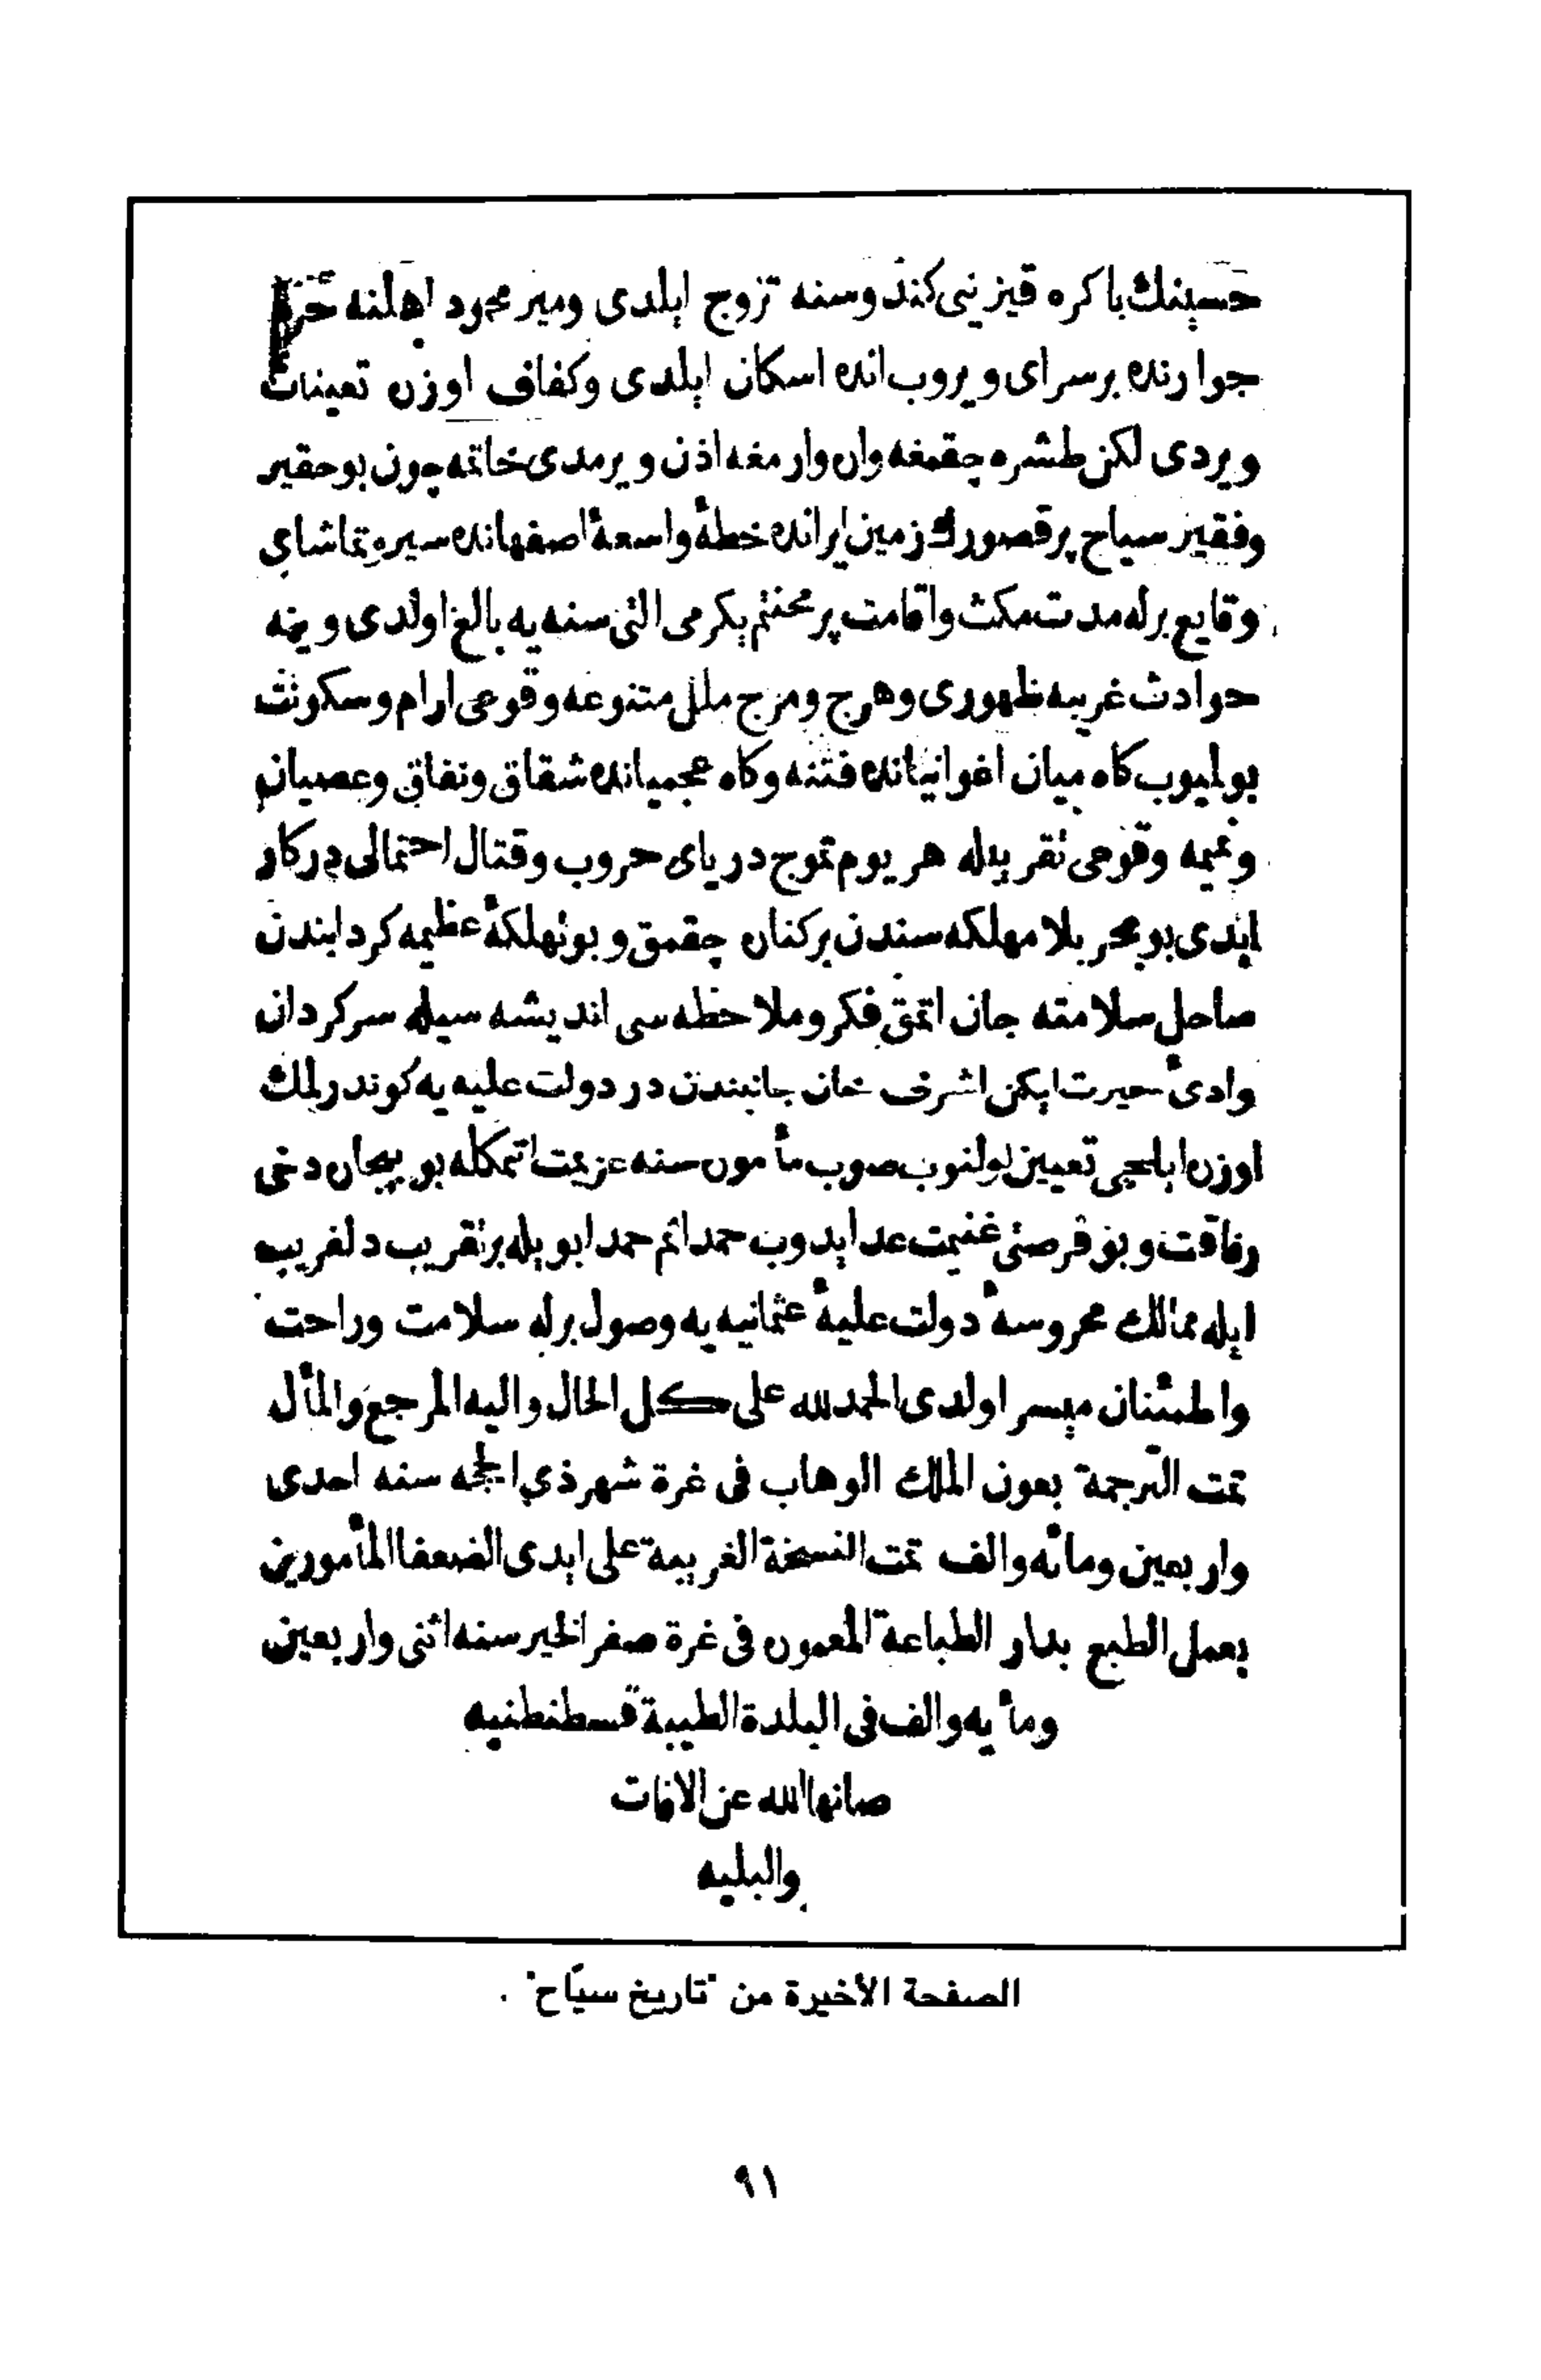 حسينك باكره قيزينى كندوسنه تزوج ايلدى ومير محمود اهلنه حرم
جوارنده برسراى ويروب انده اسكان ايلدى وكفاف اوزره تعينات
ويردى لكن طشره چقمغه واروارمغه اذن ويرمدى خاتمه چون بوحقير
وفقير سياح پرقصورك زمين ايرانده خطهٔ واسعهٔ اصفهانده سيره تماشاى
وقايع برله مدت مكث واقامت پرمحنتم يكرمى التى سنه يه بالغ اولدى ونيچه
حوادث غريبه ظهورى وهرج ومرج ملل متنوعه وقوعى ارام وسكونت
بولميوب كاه ميان اغوانيانده فتنه وكاه عجميانده شقاق ونفاق وعصيانم
وعميمه وقوعى تقريبله هر يوم تموج درياى حروب وقتال احتمالى دركار
ايدى بو بحر بلا مهلكه سندن بركنار چقمق وبو تهلكهٔ عظيمه كردابندن
ساحل سلامته جان اتمق فكر وملاحظه سى انديشه سيله سركردان
وادئ حيرت ايكن اشرف خان جانبندن در دولت عليه يه كوندرلمك
اوزره ايلچى تعيين اولنوب صوب مأموره سنه عزيمت اتمكله بو بيجان دخى
رفاقت وبو فرصتى غنيمت عد ايدوب حمدا ثم حمدا بويله برتقريب دلفريب
ايله ممالك محروسهٔ دولت عليهٔ عثمانيه يه وصول برله سلامت وراحت
واطمئنان ميسر اولدى الحمد لله على كل الحال واليه المرجع والمأل
تمت الترجمة بعون الملك الوهاب فى غرة شهر ذي الحجه سنه احدى
واربعين ومائه والف تمت النسخة الغريبة على ايدى الضعفا المأمورين
بعمل الطبع بدار الطباعة المعموره فى غرة صفر الخير سنه اثنى واربعين
ومأيه والف فى البلدة الطيبة قسطنطنيه
صانها الله عن الافات
والبليه
الصفحة الأخيرة من "تاريخ سيّاح" .
٩١